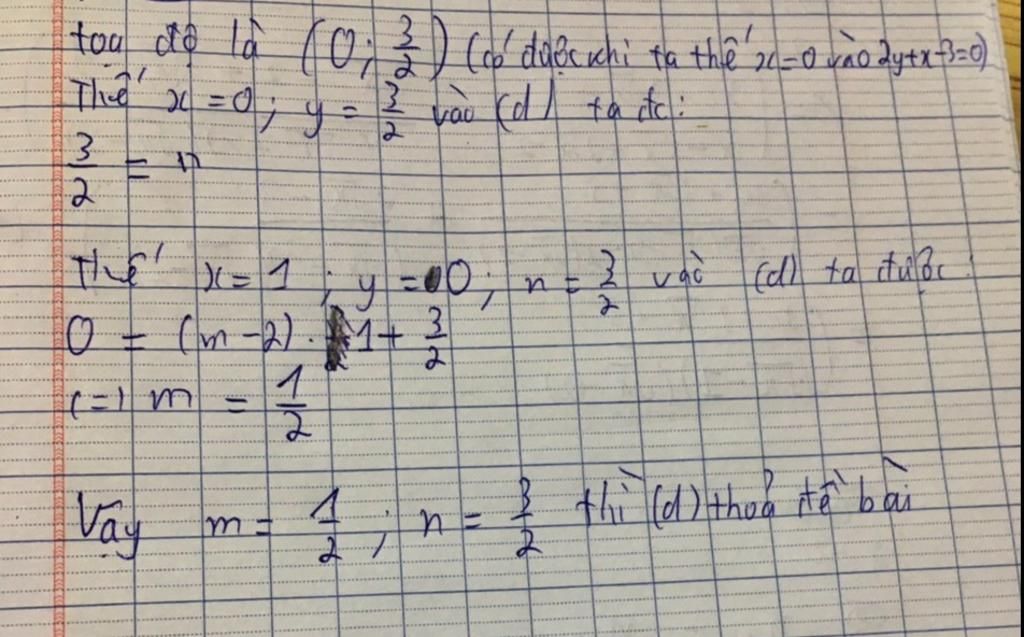 toạ độ là (0; 3/2) (có được khi ta thế x=0 vào 2y+x-3=0)
Thế x = 0; y = 3/2 vào (d) ta đc:
3/2 = n
Thế x = 1; y = 0; n = 3/2 vào (d) ta được:
0 = (m-2).1 + 3/2
(=) m = 1/2
Vậy m = 1/2; n = 3/2 thì (d) thoả đề bài